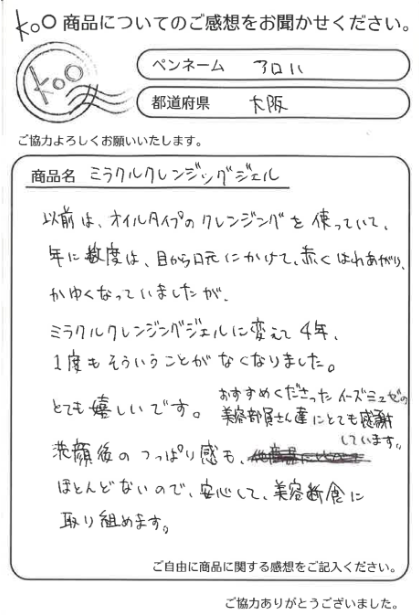 KOO 商品についてのご感想をお聞かせください。
KOO
ペンネーム アロハ
都道府県 大阪
ご協力よろしくお願いいたします。
商品名 ミラクルクレンジングジェル
以前は、オイルタイプのクレンジングを使っていて、
年に数度は、目から口元にかけて、赤くはれあがり、
かゆくなっていましたが、
ミラクルクレンジングジェルに変えて4年、
1度もそういうことがなくなりました。
とても嬉しいです。
おすすめくださったイーズミュゼの
美容部員さん達にとても感謝
しています。
洗顔後のつっぱり感も、
ほとんどないので、安心して、美容断食に
取り組めます。
ご自由に商品に関する感想をご記入ください。
ご協力ありがとうございました。